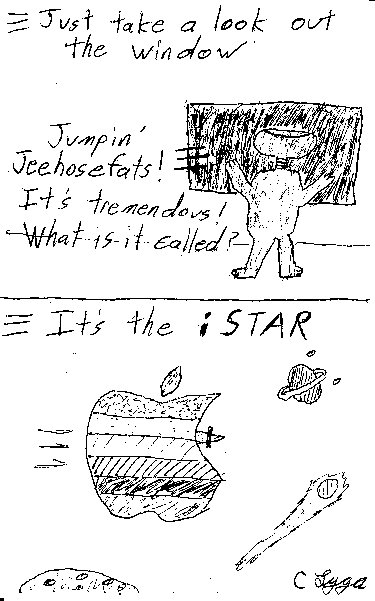 Just take a look out
the window
Jumpin'
Jeehosefats!
It's tremendous!
What is it called?
It's the iSTAR
C Lyga